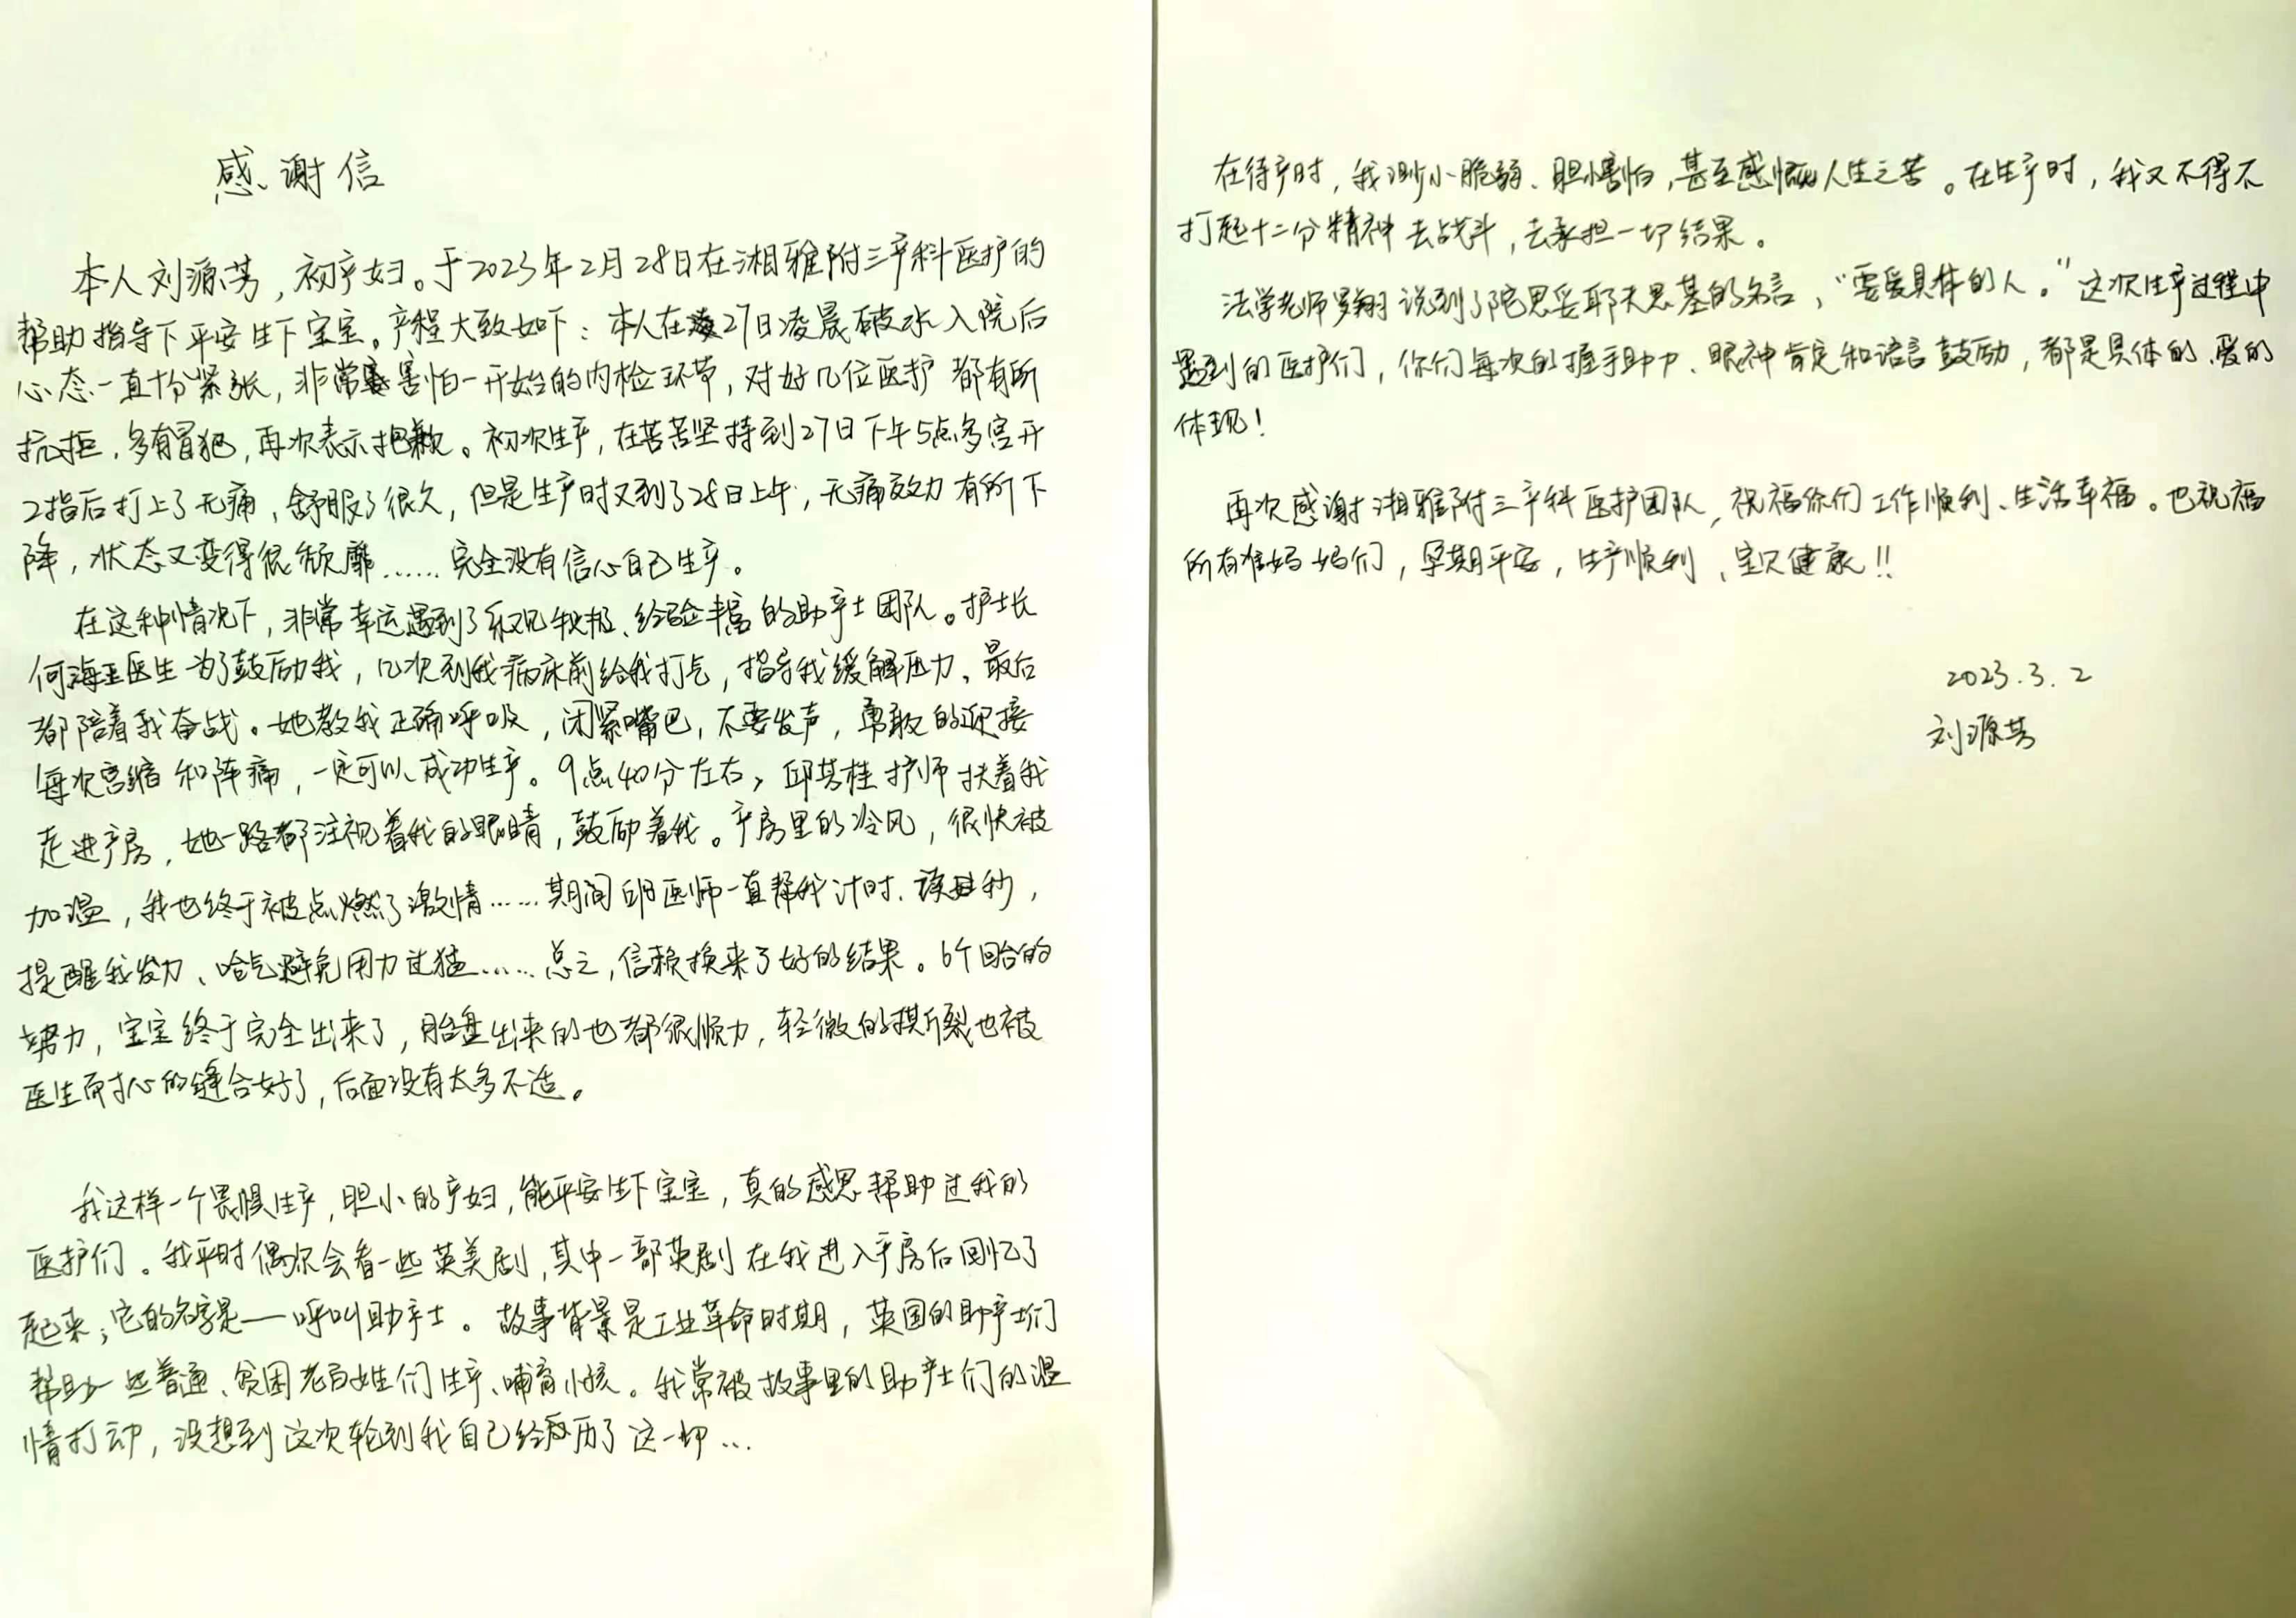 感谢信
本人刘源芳，初产妇。于2023年2月28日在湘雅附三产科医护的
帮助指导下平安生下宝宝。产程大致如下：本人在27日凌晨破水入院后
心态一直十分紧张，非常害怕一开始的内检环节，对好几位医护都有所
抗拒，多有冒犯，再次表示抱歉。初次生产，在苦苦坚持到27日下午5点多宫开
2指后打上了无痛，舒服了很久，但是生产时又到了28日上午，无痛效力有所下
降，状态又变得很颓靡……完全没有信心自己生产。
在这种情况下，非常幸运遇到了积极、经验丰富的助产士团队。护士长
何海医生为了鼓励我，几次到我病床前给我打气，指导我缓解压力，最后
都陪着我奋战。她教我正确呼吸，闭紧嘴巴，不要发声，勇敢的迎接
每次宫缩和阵痛，一定可以成功生产。9点40分左右，邱芳桂护师扶着我
走进产房，她一路都注视着我的眼睛，鼓励着我。产房里的冷风，很快被
加温，我也终于被点燃了激情……期间邱医师一直帮我计时、读秒，
提醒我发力、哈气避免用力过猛……总之，信赖换来了好的结果。6个回合的
努力，宝宝终于完全出来了，胎盘出来的也都很顺力，轻微的撕裂也被
医生耐心的缝合好了，后面没有太多不适。
我这样一个畏惧生产，胆小的产妇，能平安生下宝宝，真的感恩帮助过我的
医护们。我平时偶尔会看一些英美剧，其中一部英剧在我进入产房后回忆了
起来，它的名字是——呼叫助产士。故事背景是工业革命时期，英国的助产士们
帮助一些普通、贫困老百姓们生产、哺育小孩。我常被故事里的助产士们的温
情打动，没想到这次轮到我自己经历了这一切…
在待产时，我渺小脆弱、胆小害怕，甚至感慨人生之苦。在生产时，我又不得不
打起十二分精神去战斗，去承担一切结果。
法学老师罗翔说到了陀思妥耶夫思基的名言，“要爱具体的人。”这次生产过程中
遇到的医护们，你们每次的握手助力、眼神肯定和语言鼓励，都是具体的、爱的
体现！
再次感谢湘雅附三产科医护团队，祝福你们工作顺利、生活幸福。也祝福
所有准妈妈们，孕期平安，生产顺利、宝贝健康！！
2023.3.2
刘源芳